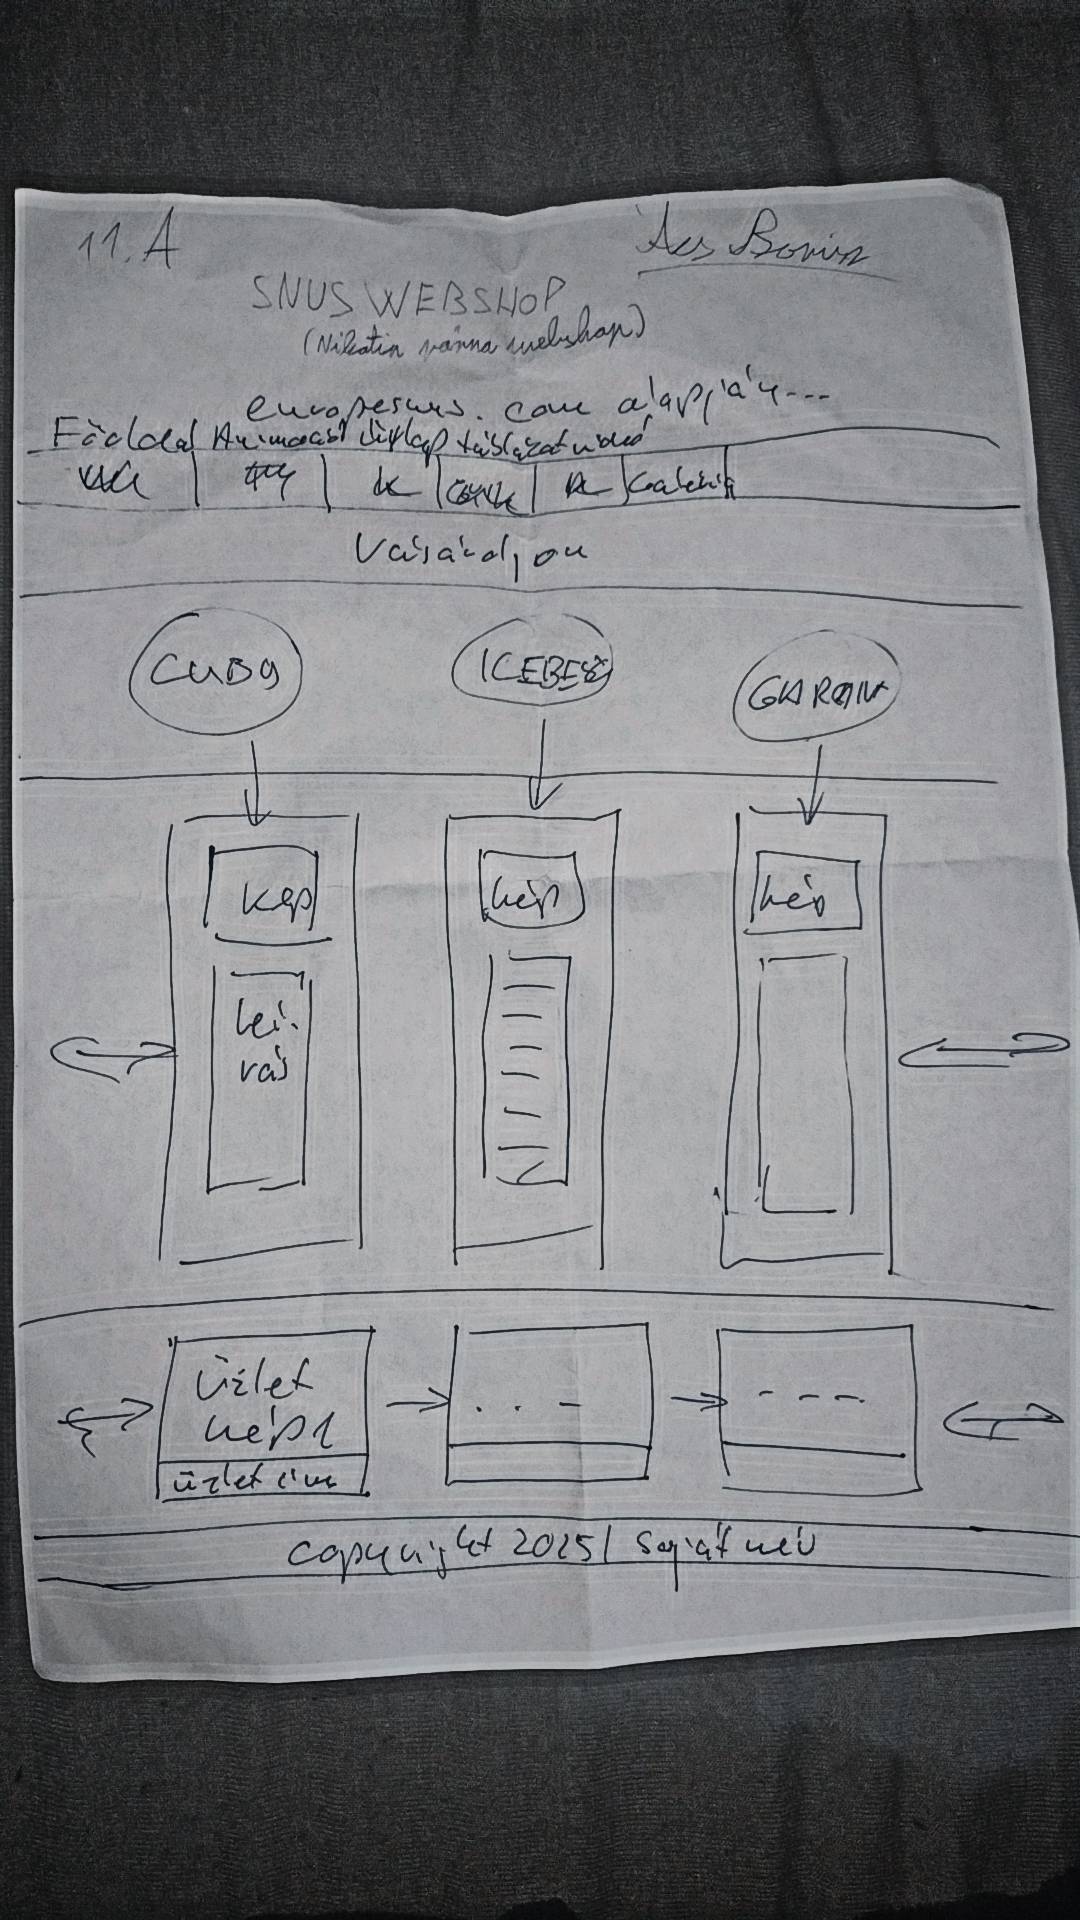 11.A
Ács Borisz
SNUS WEBSHOP
(Nikotin párna webshop)
europesnus.com alapján...
Főoldal Animáció űrlap táblázat videó
Galéria
Vásároljon
CUBA
ICEBERG
GARANT
kép
kép
kép
leí-
rás
Üzlet
kép1
üzlet cím
. . -
- - - -
copyright 2025 | Saját név